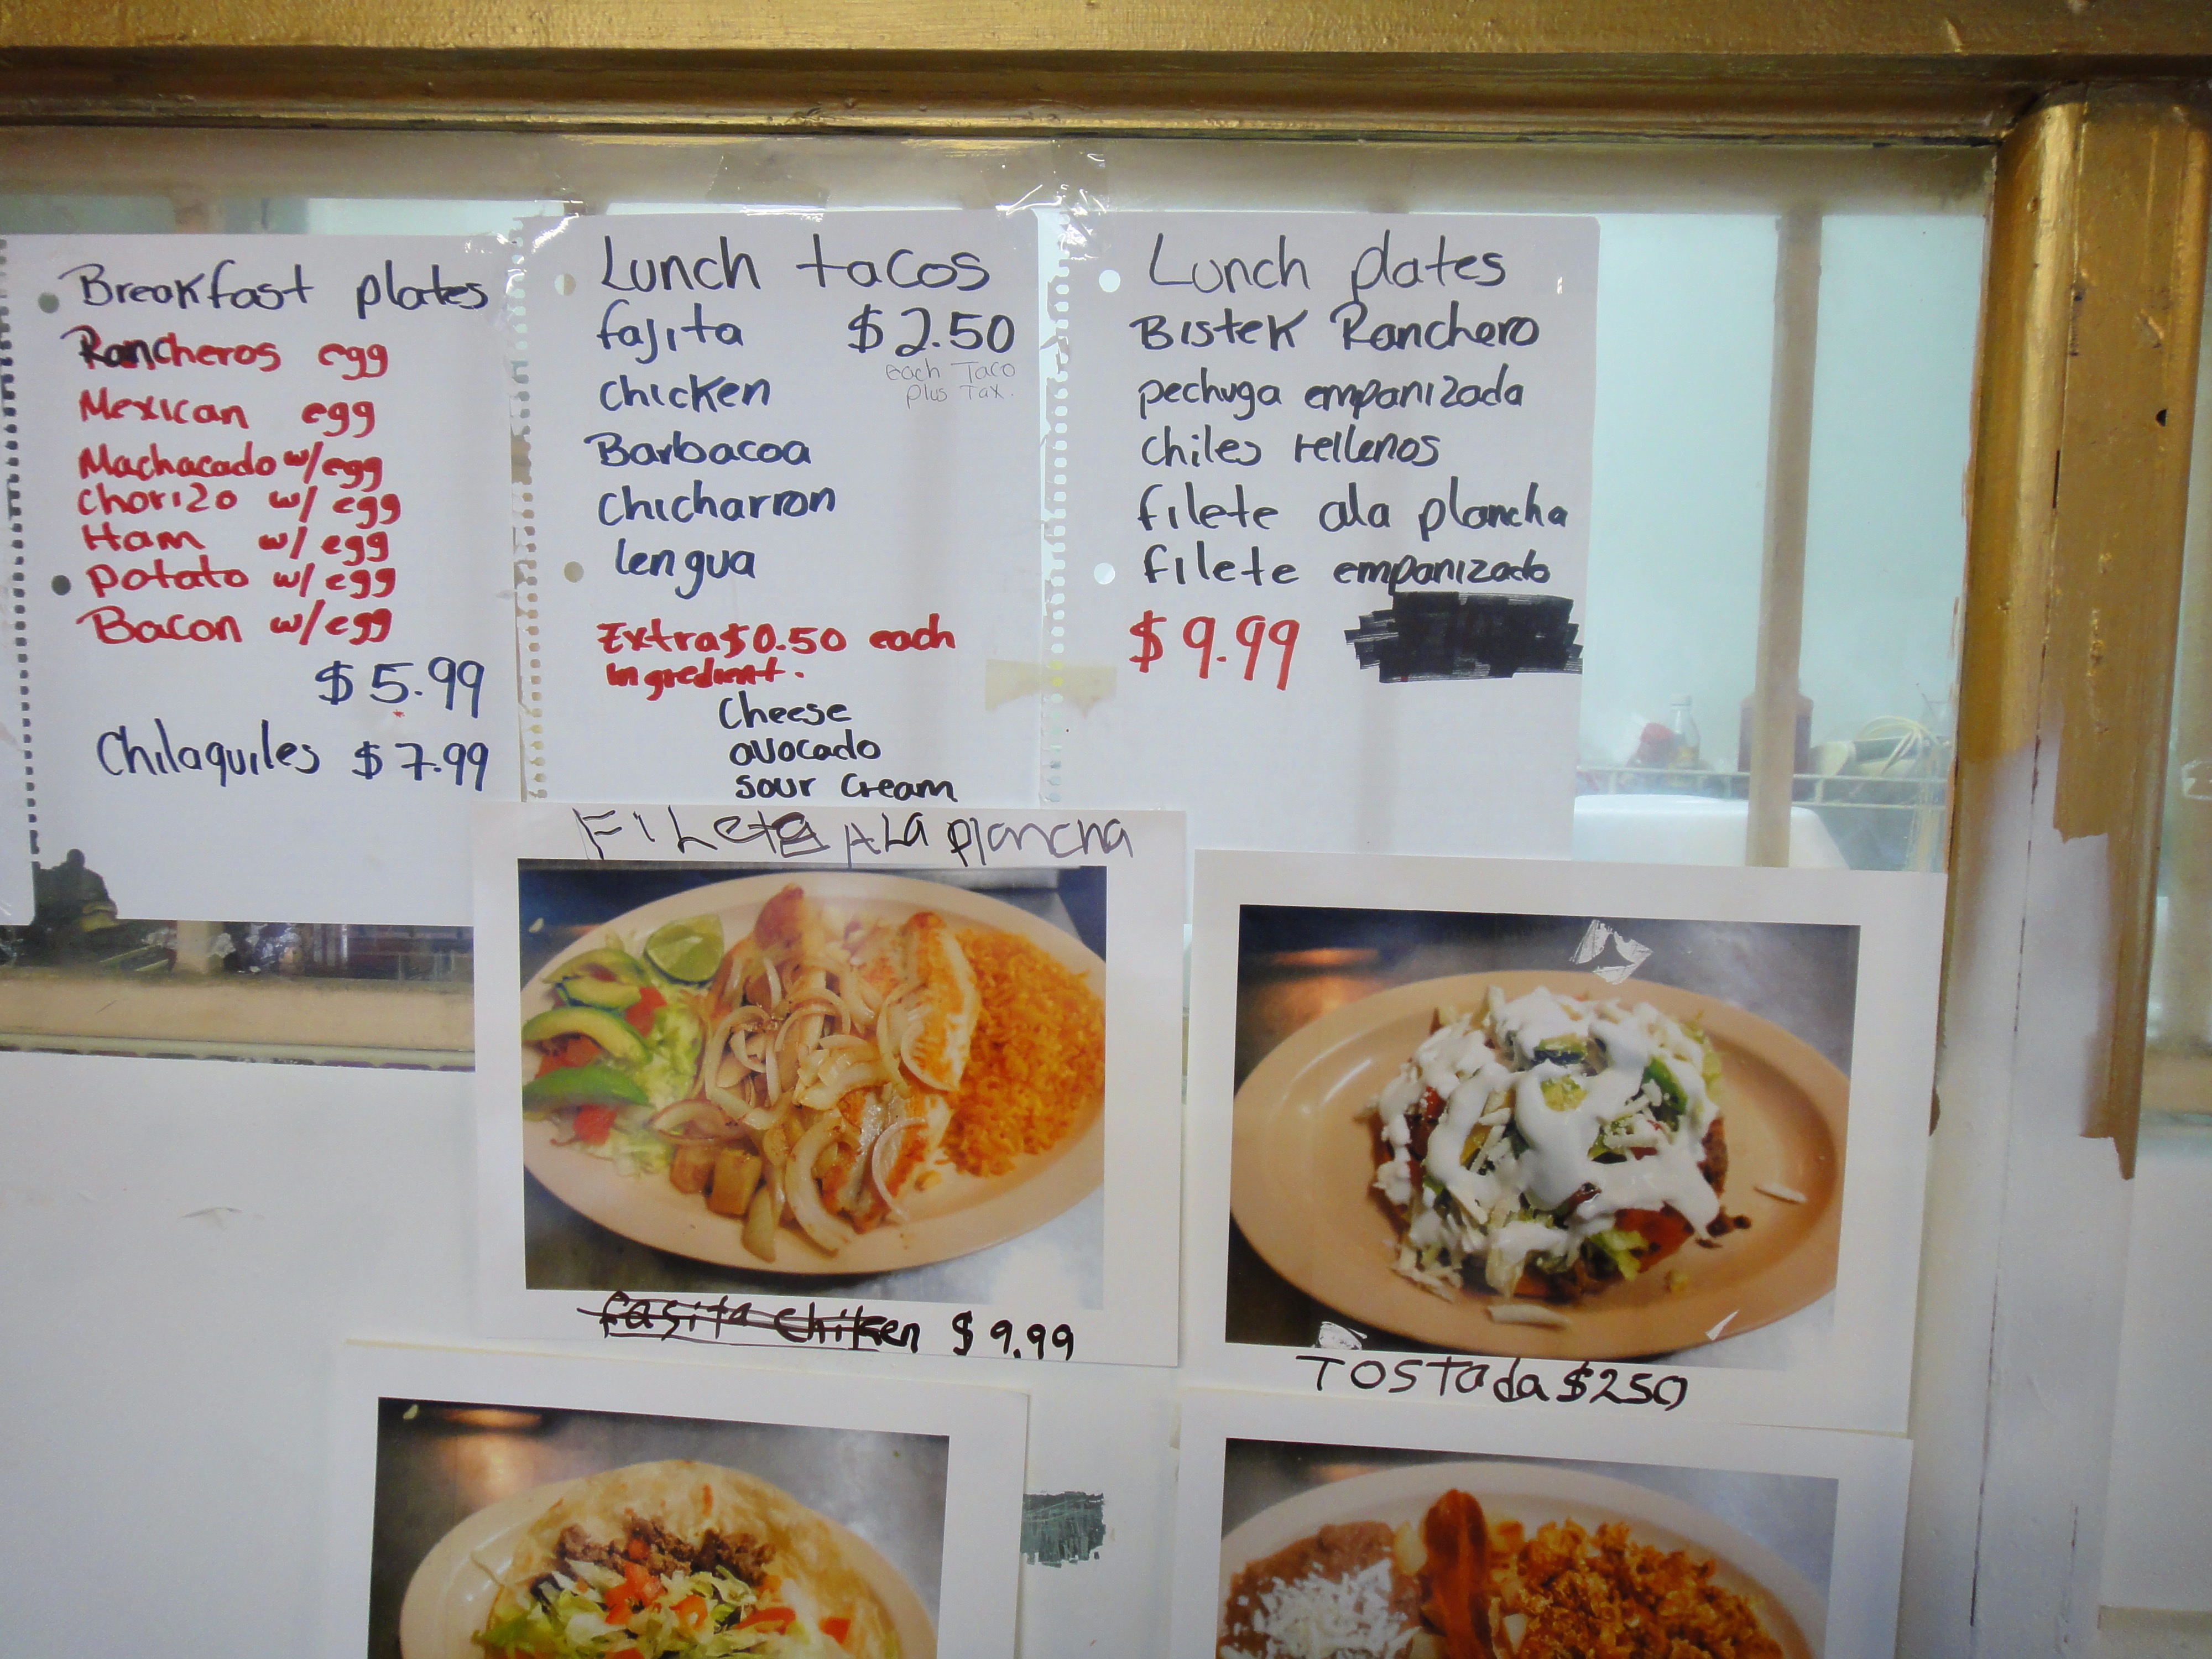 Breakfast plates
Rancheros egg
Mexican egg
Machacado w/egg
chorizo w/ egg
Ham w/ egg
potato w/ egg
Bacon w/egg
$5.99
Chilaquiles $7.99
Lunch tacos
fajita $2.50
each Taco
plus Tax.
chicken
Barbacoa
chicharron
lengua
Extra $0.50 each
ingredient.
Cheese
avocado
sour cream
Lunch plates
Bistek Ranchero
pechuga empanizada
chiles rellenos
filete ala plancha
filete empanizado
$9.99
FILete ALA plancha
fasita chiken $9.99
TOSTada $250